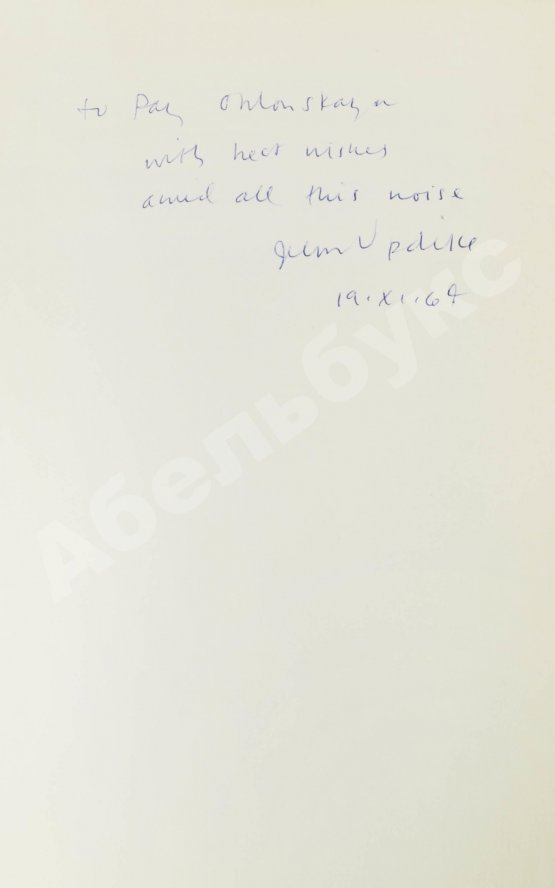 to Ray Oblonskaya
with best wishes
amid all this noise
John Updike
19.XI.64
Абельбукс